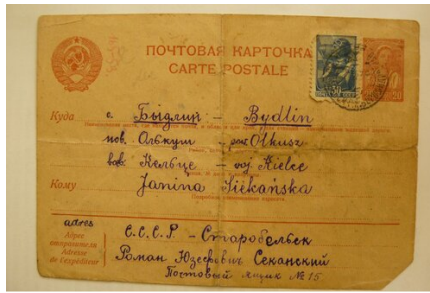 ПОЧТОВАЯ КАРТОЧКА
CARTE POSTALE
Куда с. Быдлин - Bydlin
пов. Олькуш - pow Olkusz
вов. Кельце - woj Kielce
Кому Janina Siekańska
adres
Адрес отправителя
Adresse de l'expéditeur
С.С.С.Р. - Старобельск
Роман Юзефович Секанский
Постовый ящик № 15